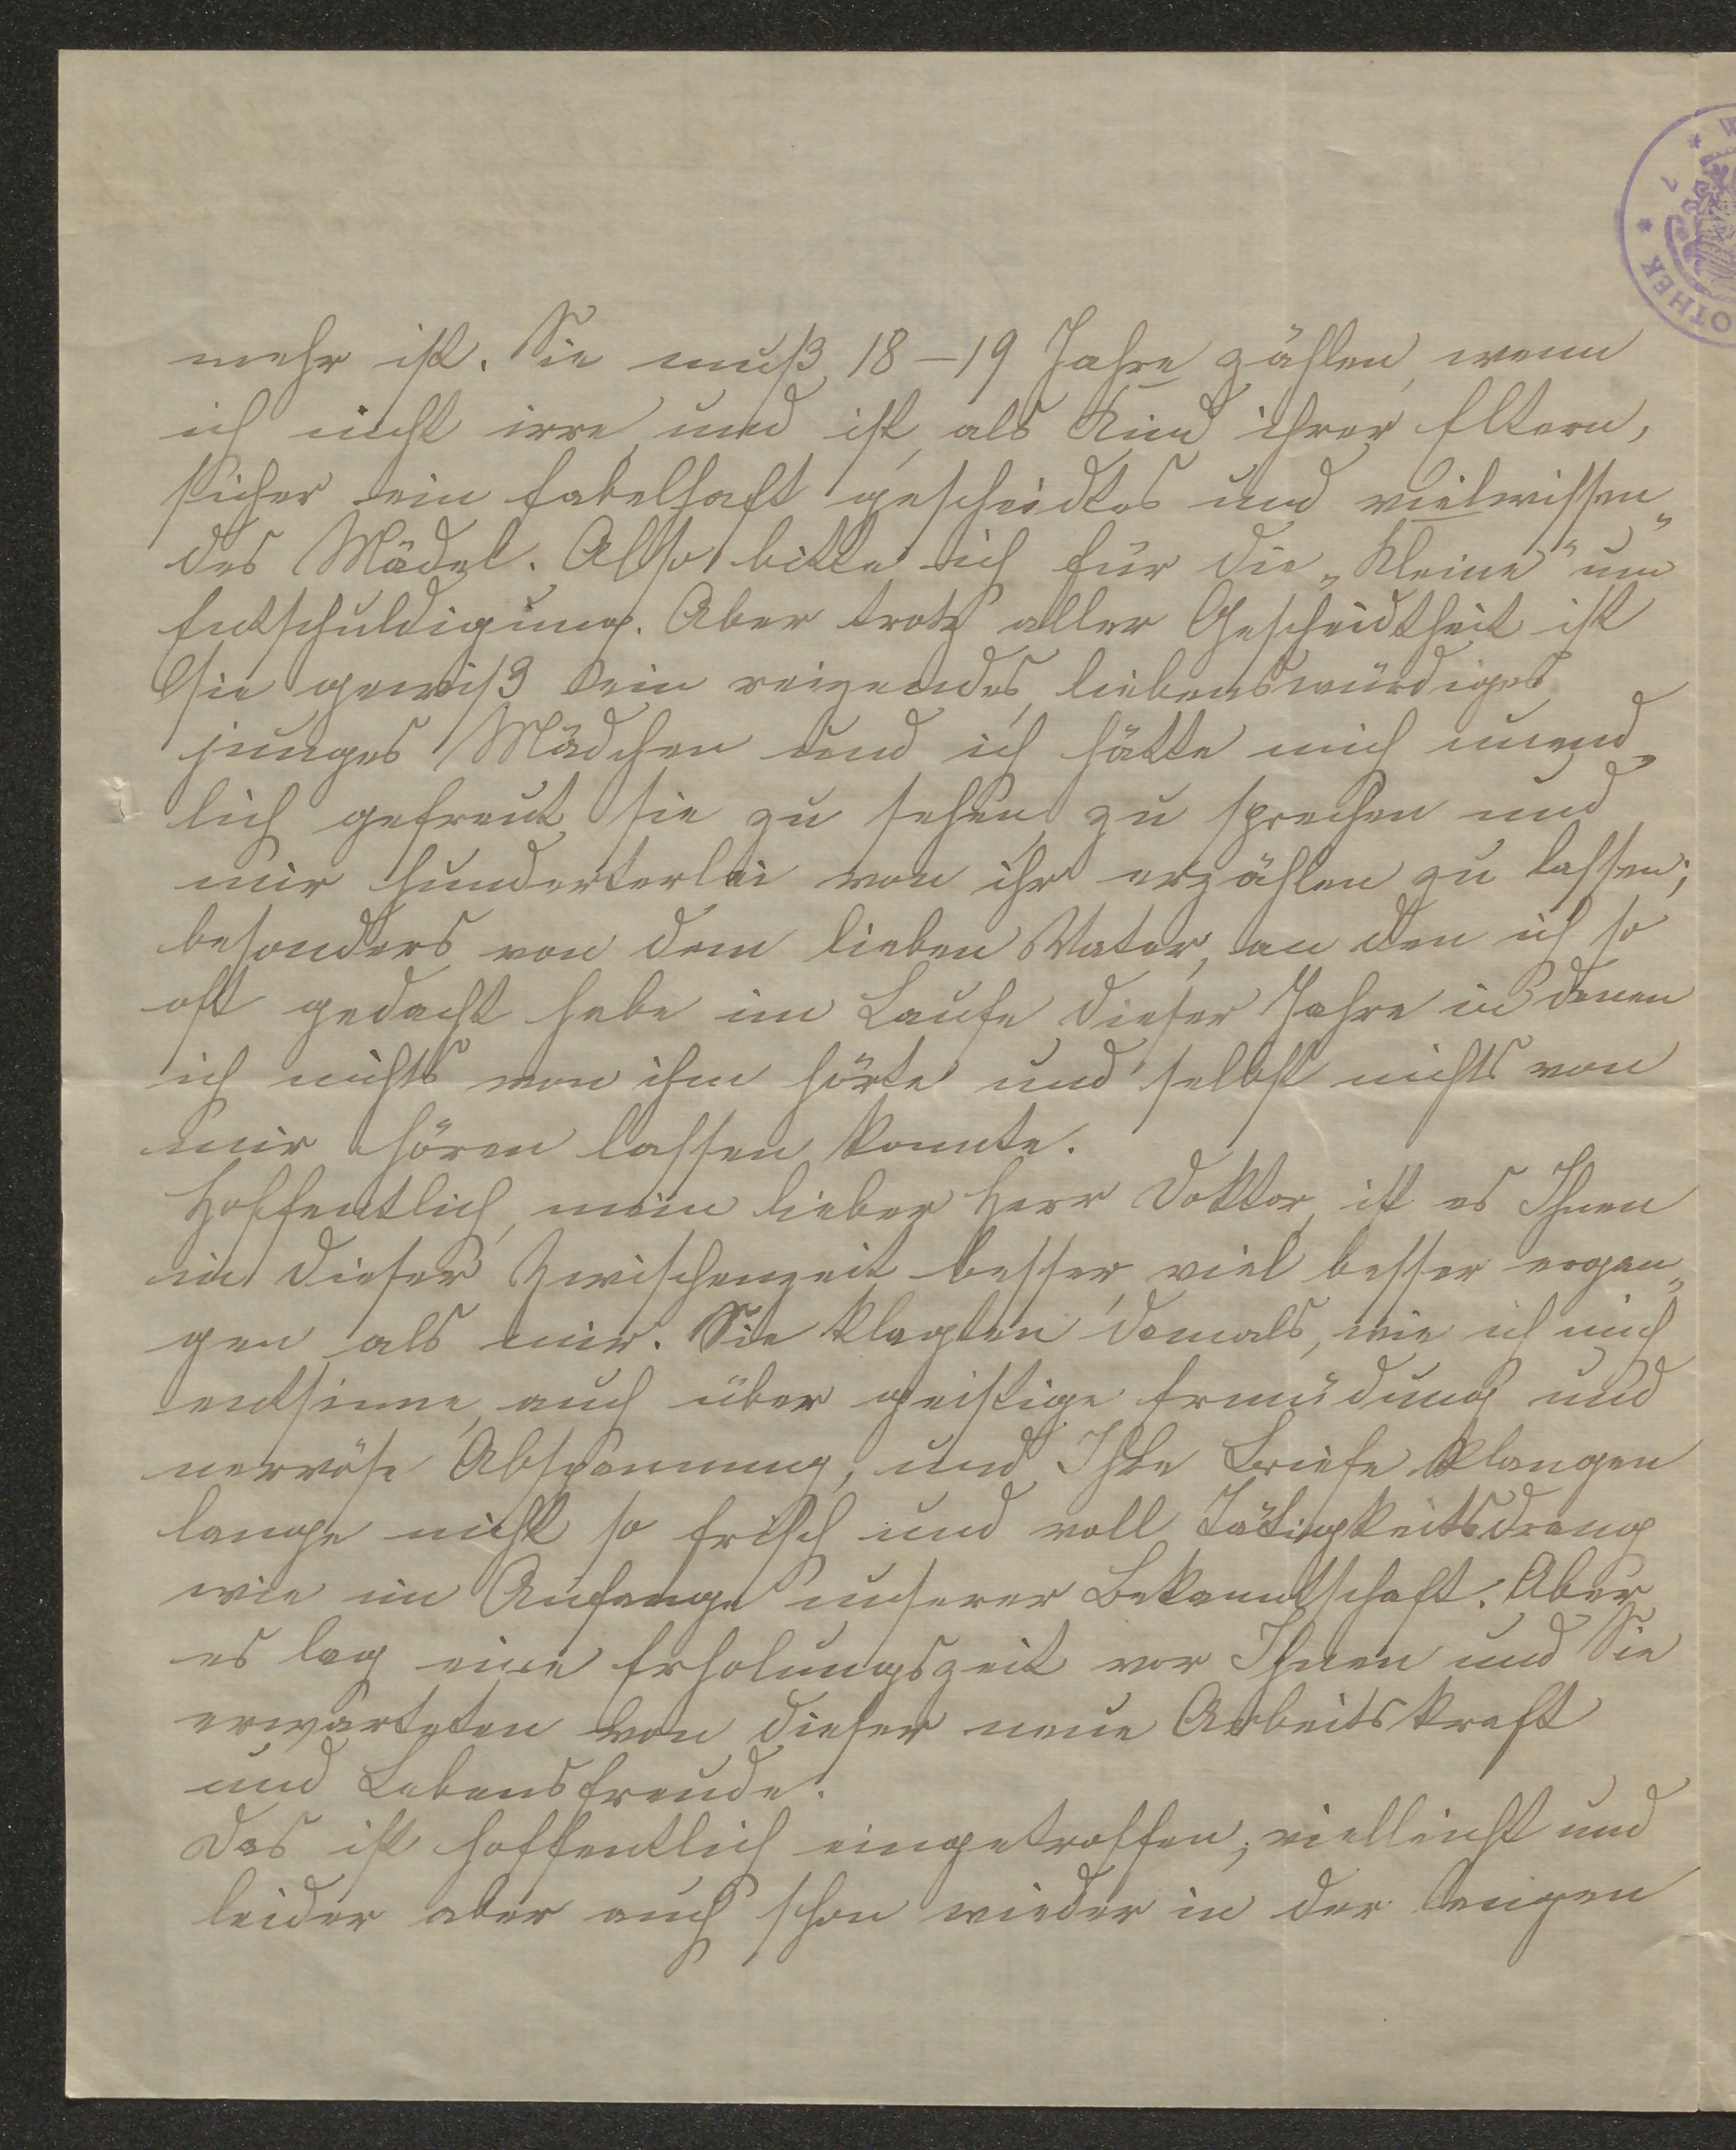 mehr ist. Sie muß 18–19 Jahre zählen, wenn
ich nicht irre und ist, als Kind ihrer Eltern,
sicher ein fabelhaft gescheidtes und vielwissen„
des Mädel. Also bitte ich für die „Kleine“ um
Entschuldigung. Aber trotz aller Gescheidtheit ist
Sie gewiß ein reizendes, liebenswürdiges,
junges Mädchen und ich hätte mich unend„
lich gefreut, sie zu sehen, zu sprechen und
mir hunderterlei von ihr erzählen zu lassen;
besonders von dem lieben Vater, an den ich so
oft gedacht habe im Laufe dieser Jahre in denen
ich nichts von ihm hörte und selbst nichts von
mir hören lassen konnte.
Hoffentlich, mein lieber Herr Doktor, ist es Ihnen
in dieser Zwischenzeit besser, viel besser ergan„
gen als mir. Sie klagten damals, wie ich mich
entsinne, auch über geistige Ermüdung und
nervöse Abspannung, und Ihre Briefe klangen
lange nicht so frisch und voll Tätigkeitsdrang
wie im Anfange unserer Bekanntschaft. Aber
es lag eine Erholungszeit vor Ihnen und Sie
erwarteten von dieser neue Arbeitskraft
und Lebensfreude.
Das ist hoffentlich eingetroffen; vielleicht und
leider aber auch schon wieder in der langen
OTHEK